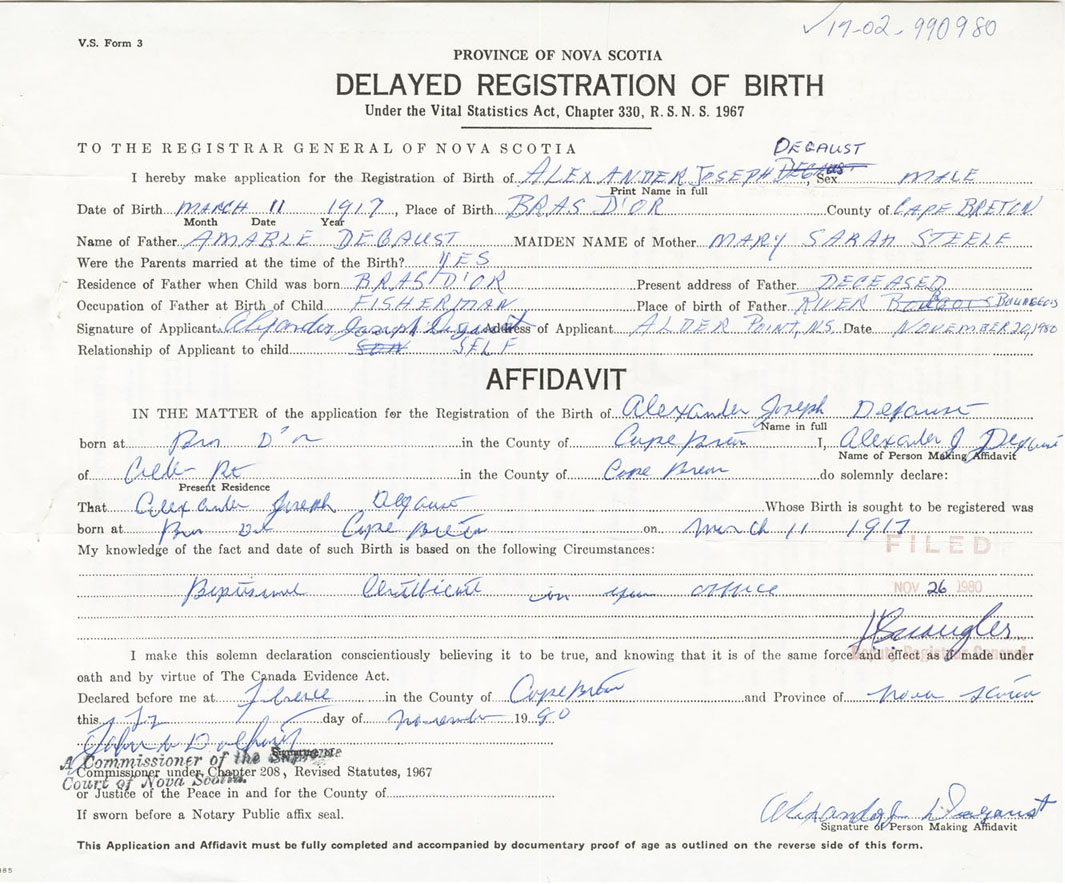 ✓17-02-990980
V.S. Form 3
PROVINCE OF NOVA SCOTIA
DELAYED REGISTRATION OF BIRTH
Under the Vital Statistics Act, Chapter 330, R. S. N. S. 1967
TO THE REGISTRAR GENERAL OF NOVA SCOTIA
DEGAUST
I hereby make application for the Registration of Birth of ALEXANDER JOSEPH, Sex MALE
Print Name in full
Date of Birth MARCH 11 1917, Place of Birth BRAS D'OR County of CAPE BRETON
Month Date Year
Name of Father AMABLE DEGAUST MAIDEN NAME of Mother MARY SARAH STEELE
Were the Parents married at the time of the Birth? YES
Residence of Father when Child was born BRAS D'OR Present address of Father DECEASED
Occupation of Father at Birth of Child FISHERMAN Place of birth of Father RIVER BOURGEOIS
Signature of Applicant Alexander Joseph Address of Applicant ALDER POINT, N.S. Date NOVEMBER 20, 1980
Relationship of Applicant to child SON SELF
AFFIDAVIT
IN THE MATTER of the application for the Registration of the Birth of Alexander Joseph Degaust
Name in full
born at Bras D'or in the County of Cape Breton I, Alexander J Degaust
Name of Person Making Affidavit
of Alder Pt in the County of Cape Breton do solemnly declare:
Present Residence
That Alexander Joseph Degaust Whose Birth is sought to be registered was
born at Bras Dor Cape Breton on March 11 1917
My knowledge of the fact and date of such Birth is based on the following Circumstances:
FILED
Baptismal Certificate in your office
NOV 26 1980
I make this solemn declaration conscientiously believing it to be true, and knowing that it is of the same force and effect as if made under
Deputy Registrar General
oath and by virtue of The Canada Evidence Act.
Declared before me at Florence in the County of Cape Breton and Province of Nova Scotia
this day of November 1980
A Commissioner of the Supreme
Commissioner under Chapter 208, Revised Statutes, 1967
Court of Nova Scotia.
or Justice of the Peace in and for the County of
If sworn before a Notary Public affix seal.
Alexander J Degaust
Signature of Person Making Affidavit
This Application and Affidavit must be fully completed and accompanied by documentary proof of age as outlined on the reverse side of this form.
985